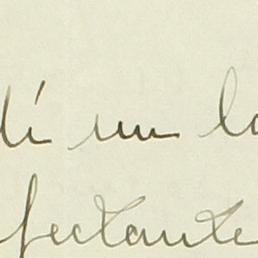 dí un la
fectante